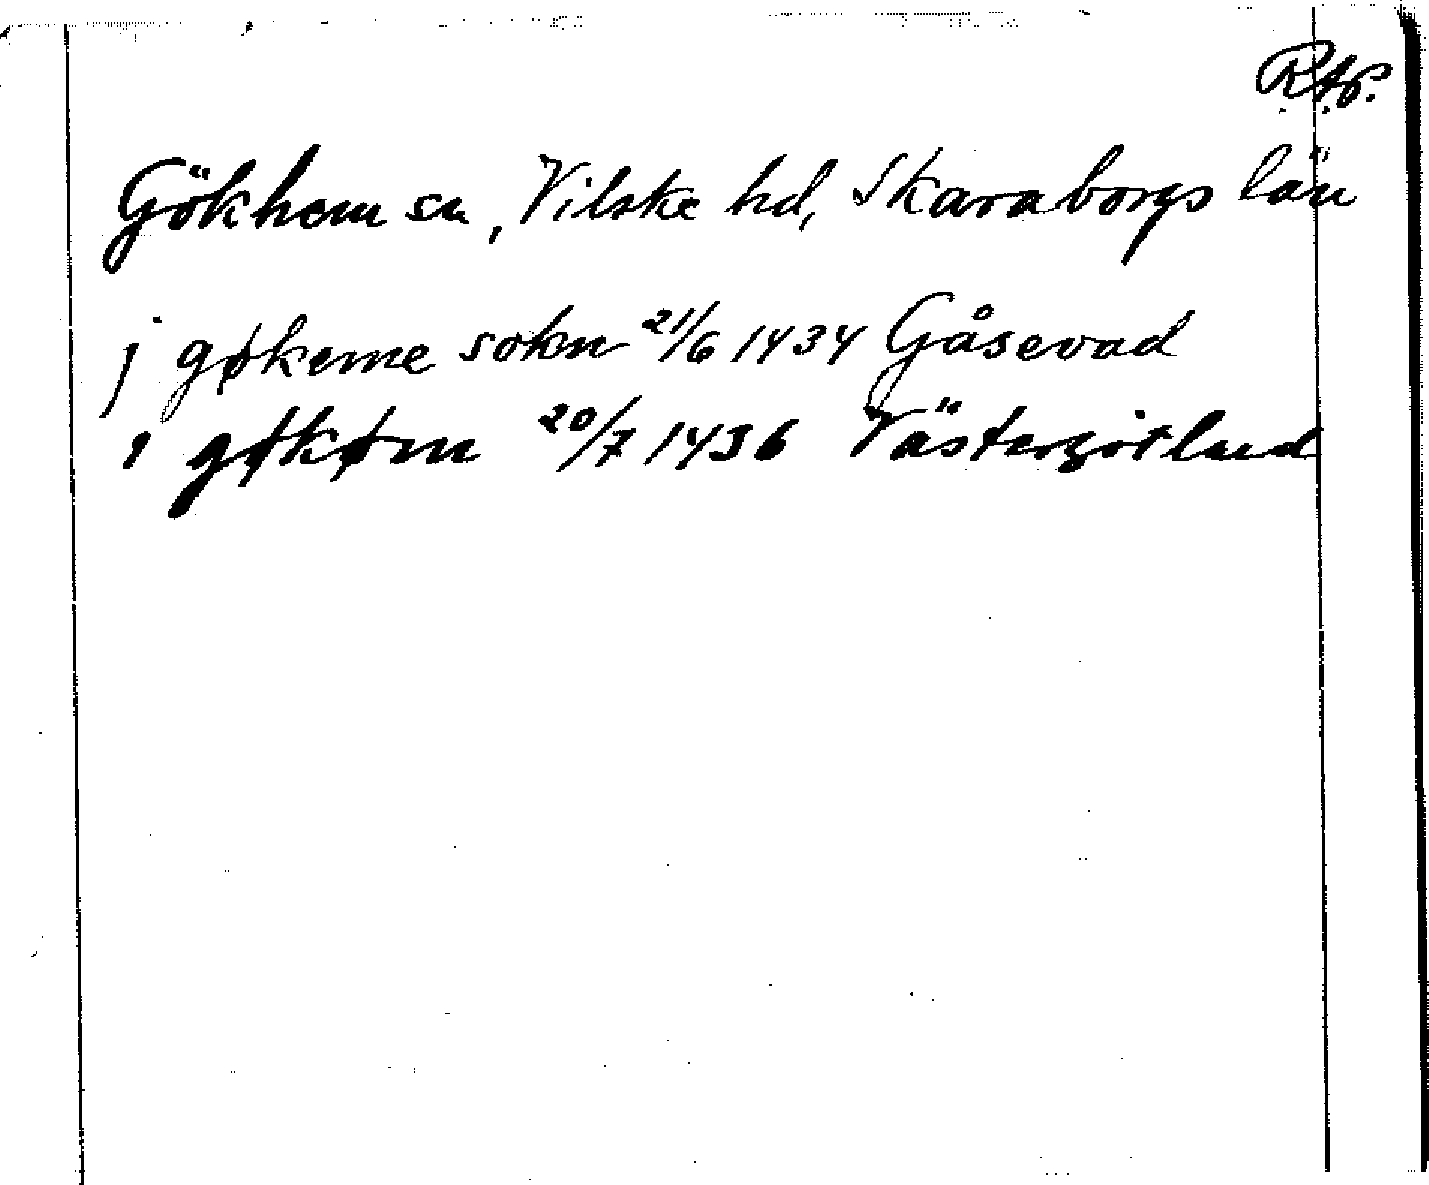 R.A.P.
Gökhem sn, Vilske hd, Skaraborgs län
j gøkeme sokn 21/6 1434 Gåsevad
i gøkøm 20/7 1436 Västergötland